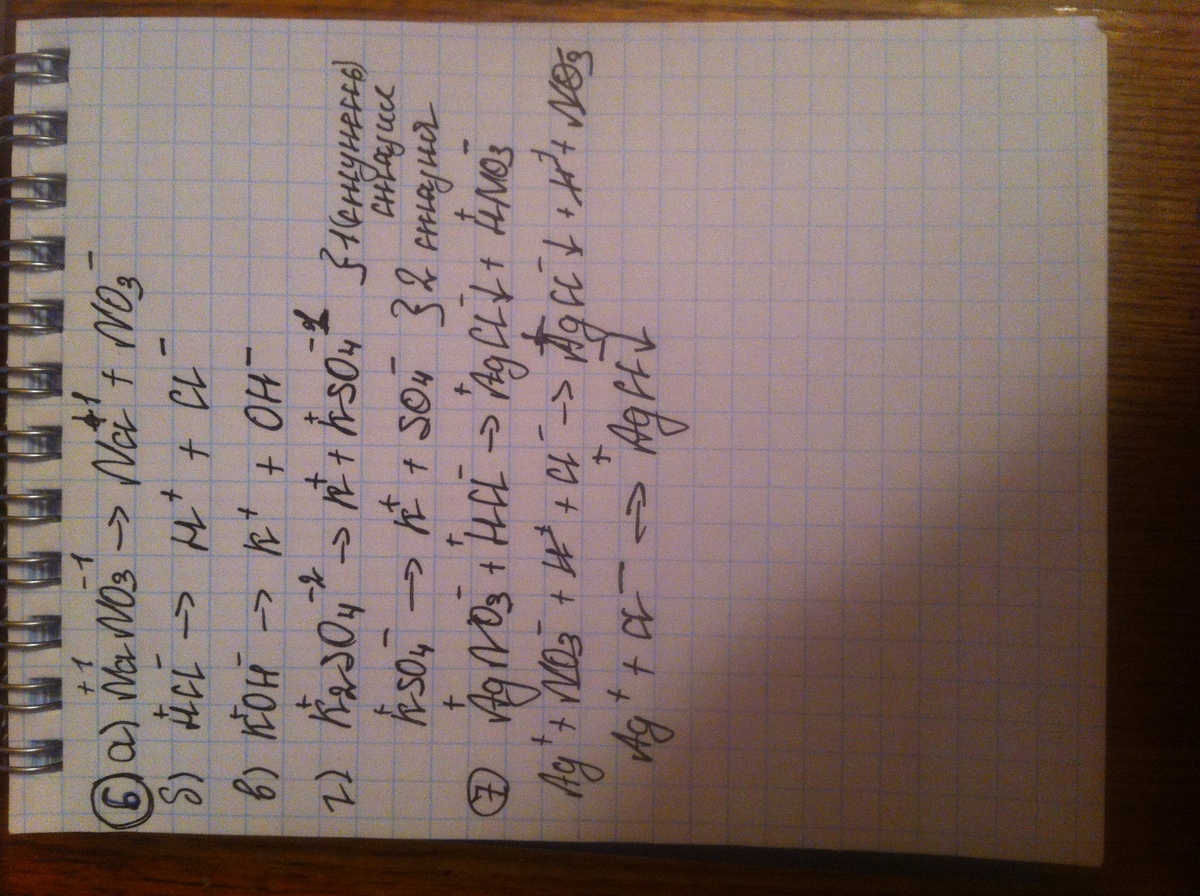 ⑥ а) Na⁺¹NO₃⁻¹ → Na⁺¹ + NO₃⁻
б) H⁺Cl⁻ → H⁺ + Cl⁻
в) K⁺OH⁻ → K⁺ + OH⁻
г) K₂⁺SO₄⁻² → K⁺ + K⁺SO₄⁻ } 1 (ступень)
стадия
K⁺SO₄⁻ → K⁺ + SO₄⁻ } 2 стадия
⑦ Ag⁺NO₃⁻ + H⁺Cl⁻ → Ag⁺Cl⁻↓ + H⁺NO₃⁻
Ag⁺ + NO₃⁻ + H⁺ + Cl⁻ → Ag⁺Cl⁻↓ + H⁺ + NO₃⁻
Ag⁺ + Cl⁻ → Ag⁺Cl⁻↓